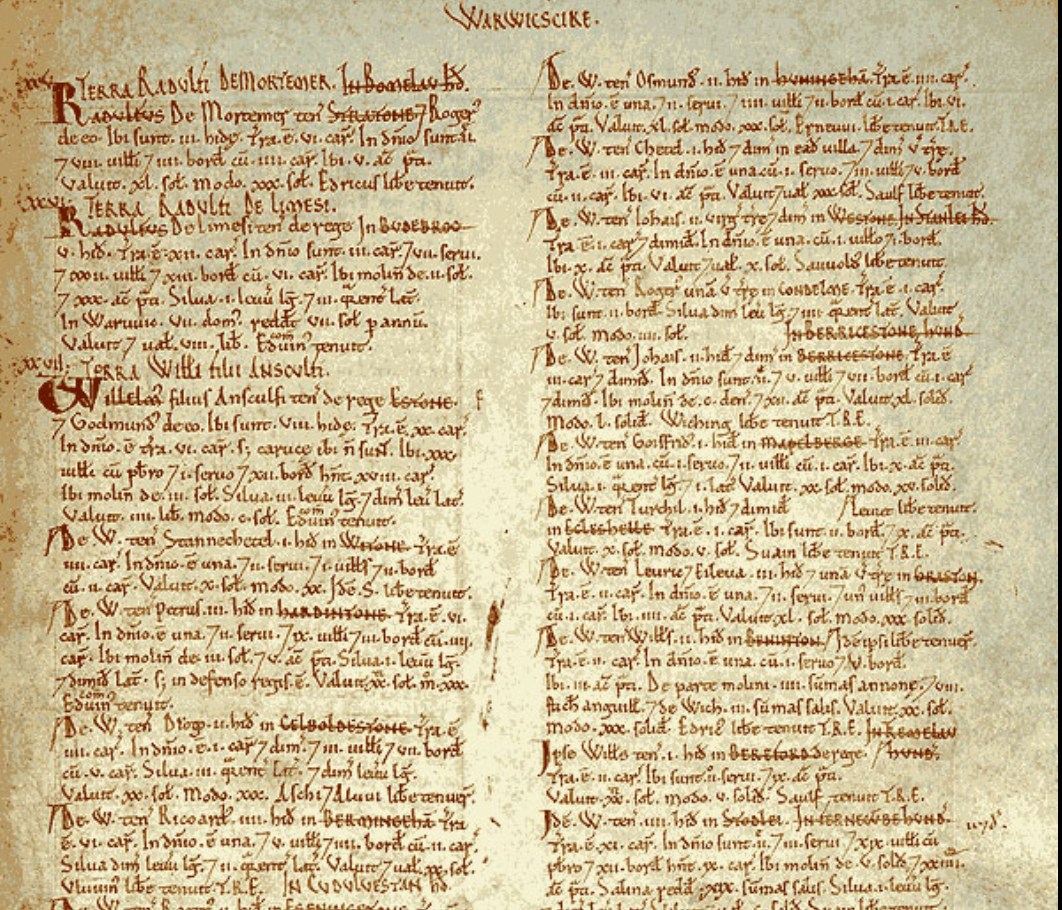 WARWICSCIRE.
XXV. TERRA RADULFI DEMORTEMER. In Bomelau hđ.
RADULFUS De Mortemer ten̄ STRATONE. 7 Roger̄
de eo. Ibi sunt. iii. hidę. Tr̄a. ē. vi. car̄. In dn̄io sunt. ii.
7 viii. uilłi 7 iiii. borđ cū. iiii. car̄. Ibi. v. ac̄ p̄ti.
Valuit. xl. soł. Modo. xxx. soł. Edricus libē tenuit.
XXVI. TERRA RADULFI DE LIMESI.
RADULFUS De limesi ten̄ de rege In BUDEBROC
v. hiđ. Tr̄a. ē. xii. car̄. In dn̄io sunt. iii. car̄. 7 vii. serui.
uilłi 7 xiii. borđ cū. vi. car̄. Ibi molin̄ de. ii. soł.
7 xxx. ac̄ p̄ti. Silua. i. leuū lḡ. 7 iii. q̄rent̄ lat̄.
In Waruuic. vii. dom̄. reddt̄ vii. soł p annū.
Valuit 7 uał. viii. lib̄. Eduin com̄ tenuit.
XXVII. TERRA WILLI FILII ANSCULFI.
WILLELMUS filius Ansculfi ten̄ de rege ESTONE.
7 Godmund̄ de eo. Ibi sunt. viii. hidę. Tr̄a. ē. xx. car̄.
In dn̄io. ē tr̄a. vi. car̄. s; carucę ibi n̄ sunt. Ibi. xxx.
uilłi cū pb̄ro 7 i. seruo 7 xii. borđ hn̄t. xviii. car̄.
Ibi molin̄ de. iii. soł. Silua. iii. leuū lḡ. 7 dim̄ leū lat̄.
Valuit. iiii. lib̄. modo. c. soł. Eduin com̄ tenuit.
De. W. ten̄ Stannechetel. i. hiđ in WITONE. Tr̄a. ē
iiii. car̄. In dn̄io. ē una. 7 ii. serui. 7 i. uilłs 7 ii. borđ
cū. ii. car̄. Valuit. x. soł. modo. xx. Ide. S. libē tenuit.
De. W. ten̄ Petrus. iii. hiđ in HARDINTONE. Tr̄a. ē. vi.
car̄. In dn̄io. ē una. 7 ii. serui. 7 ix. uilłi 7 iii. borđ cū. iiii.
car̄. Ibi molin̄ de. iii. soł. 7 v. ac̄ p̄ti. Silua. i. leuū lḡ.
7 dimiđ lat̄. s; in defenso regis. ē. Valuit. xx. soł. m̊. xxx.
Eduin com̄ tenuit.
De. W. ten̄ Drogo. ii. hiđ in CELBOLDESTONE. Tr̄a. ē
iiii. car̄. In dn̄io. ē. i. car̄ 7 dim̄. 7 iii. uilłi 7 vii. borđ
cū. v. car̄. Silua. iii. q̄rent̄ lat̄. 7 dim̄ leuū lḡ.
Valuit. xx. soł. Modo. xxx. Aschi 7 Aluui libē tenueī.
De. W. ten̄ Ricoard̄. iiii. hiđ in BERMINGEHĀ. Tr̄a
ē. vi. car̄. In dn̄io. ē una. 7 v. uilłi 7 iiii. borđ cū. ii. car̄.
Silua dim̄ leuū lḡ. 7 ii. q̄rent̄ lat̄. Valuit 7 uał. xx. soł.
Vluuin̄ libē tenuit. T.R.E. IN CUDULVESTAN HĐ.
De. W. ten̄ Roger̄
De. W. ten̄ Osmund̄. ii. hiđ in HUNINGEHĀ. Tr̄a. ē. iiii. car̄.
In dn̄io. ē una. 7 ii. serui. 7 iiii. uilłi 7 ii. borđ cū. i. car̄. Ibi. vi.
ac̄ p̄ti. Valuit. xl. soł. modo. xxx. soł. Erneuui libē tenuit. T.R.E.
De. W. ten̄ Chetel. i. hiđ 7 dim̄ in eađ uilla 7 dim̄ v̄ træ.
Tr̄a. ē. iii. car̄. In dn̄io. ē una. cū. i. seruo. 7 iii. uilłi 7 v. borđ
cū. ii. car̄. Ibi. vi. ac̄ p̄ti. Valuit 7 uał. xxx. soł. Saulf libē tenuit.
De. W. ten̄ Iohais. ii. uirg̊ træ 7 dim̄ in WESTONE. In Stanlei hđ.
Tr̄a. ē. i. car̄ 7 dimiđ. In dn̄io. ē una. cū. i. uilło 7 i. borđ.
Ibi. x. ac̄ p̄ti. Valuit 7 uał. x. soł. Sauuold̄ libē tenuit.
De. W. ten̄ Roger̄ unā v̄ træ in CONDELME. Tr̄a. ē. i. car̄.
Ibi sunt. ii. borđ. Silua dim̄ leū lḡ. 7 iiii. q̄rent̄ lat̄. Valuit
v. soł. modo. iiii. soł. IN BERRICESTONE HUNĐ.
De. W. ten̄ Johais. ii. hiđ 7 dim̄ in BERRICESTONE. Tr̄a. ē
iii. car̄ 7 dimiđ. In dn̄io sunt. ii. 7 v. uilłi 7 vii. borđ cū. i. car̄
7 dimiđ. Ibi molin̄ de. c. den̄. 7 xii. ac̄ p̄ti. Valuit. xl. soliđ.
Modo. l. soliđ. Wiching libē tenuit T.R.E.
De. W. ten̄ Goisfrid̄. i. hiđ in MAPELBERGE. Tr̄a. ē. iii. car̄
In dn̄io. ē una. cū. i. seruo. 7 ii. uilłi cū. i. car̄. Ibi. x. ac̄ p̄ti.
Silua. i. q̄rent̄ lḡ. 7 i. lat̄. Valuit. xx. soł. modo. xv. soliđ.
De. W. ten̄ Turchil. i. hiđ 7 dimiđ Leuiet libē tenuit.
in ECLESHELLE. Tr̄a. ē. i. car̄. Ibi sunt. ii. borđ. 7 x. ac̄ p̄ti.
Valuit. x. soł. modo. v. soł. Suain libē tenuit T.R.E.
De. W. ten̄ Leuric 7 Eileua. iii. hiđ 7 unā v̄ træ in GRASTON.
Tr̄a. ē. ii. car̄. In dn̄io. ē una. 7 ii. serui. 7 un̄ uilłs 7 iii. borđ
cū. i. car̄. Ibi. iiii. ac̄ p̄ti. Valuit. xl. soł. modo. xxx soliđ.
De. W. ten̄ Wills. ii. hiđ in BENINTON. Ide ipsi libē tenueī.
Tr̄a. ē. ii. car̄. In dn̄io. ē una. cū. i. seruo 7 v. borđ.
Ibi. iii. ac̄ p̄ti. De parte molini. iiii. sūmas annonę. 7 viii.
stich̄ anguilł. 7 de Wich. iii. sūmas salis. Valuit. xx. soł.
modo. xxx. soliđ. Edric libē tenuit T.R.E. IN REMELAU
Ipse Wills ten̄. i. hiđ in BEREFORD de rege. HUNĐ.
Tr̄a. ē. ii. car̄. Ibi sunt. ii. serui. 7 ix. ac̄ p̄ti.
Valuit. xx. soł. modo. v. soliđ. Saulf tenuit T.R.E.
Idē. W. ten̄. iiii. hiđ in Stodlei. IN FERNECUBE HUNĐ.
Tr̄a. ē. xi. car̄. In dn̄io sunt. ii. 7 iii. serui 7 xix. uilłi cū
pb̄ro 7 xii. borđ hn̄t. ix. car̄. Ibi molin̄ de. v. soliđ. 7 xxiiii.
ac̄ p̄ti. Salina redđ. xix. sūmas salis. Silua. i. leuū lḡ.